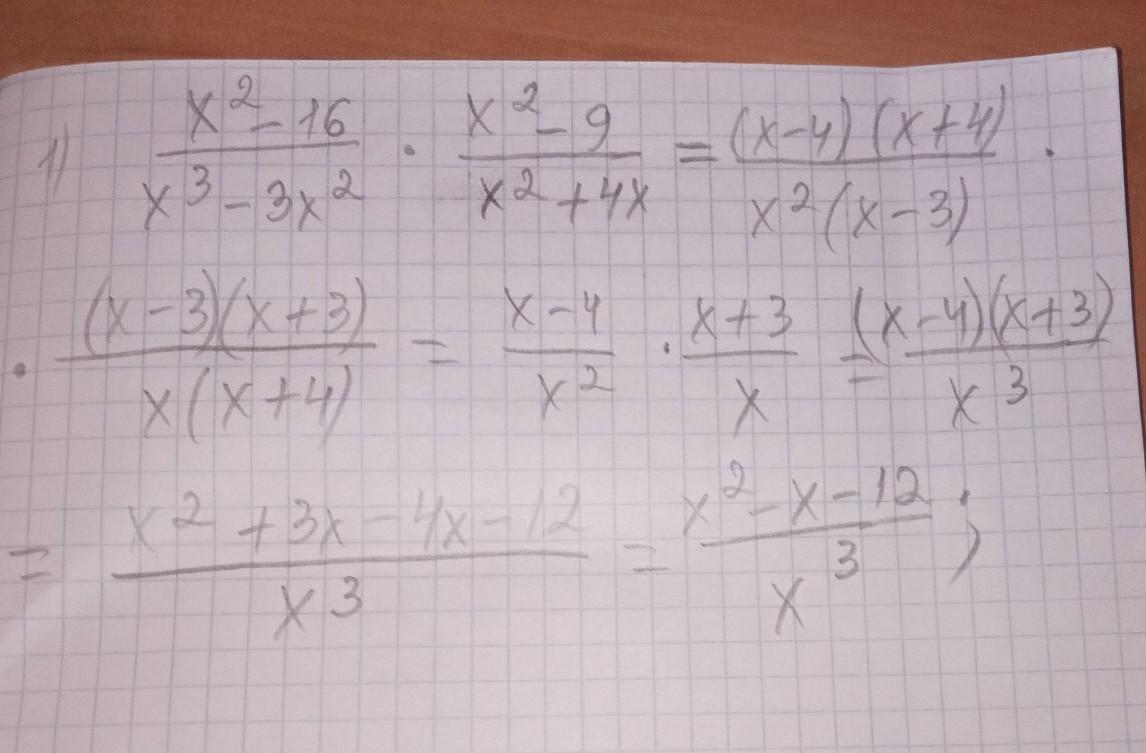 1) (x² - 16)/(x³ - 3x²) · (x² - 9)/(x² + 4x) = (x-4)(x+4)/(x²(x-3)) ·
· (x-3)(x+3)/(x(x+4)) = (x-4)/x² · (x+3)/x = (x-4)(x+3)/x³
= (x² + 3x - 4x - 12)/x³ = (x² - x - 12)/x³ ;